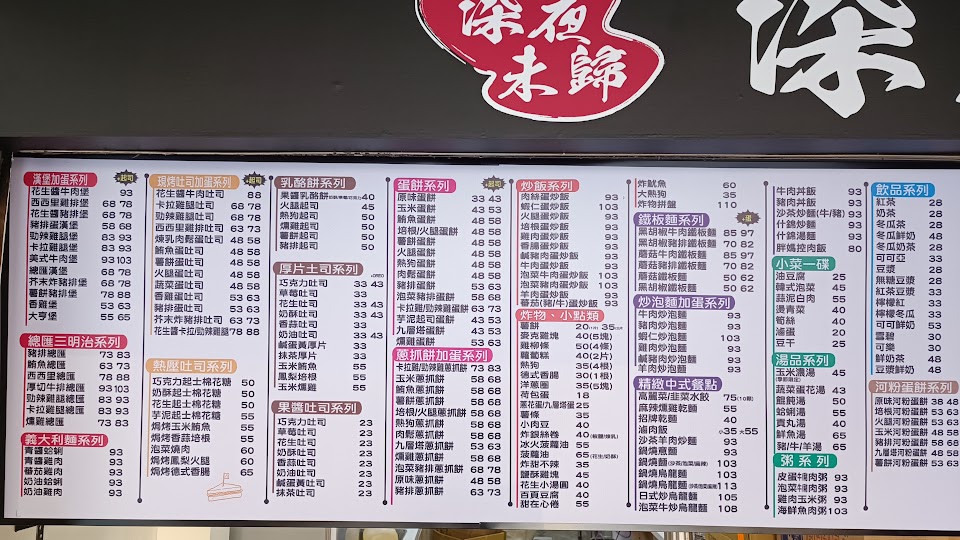 深夜
未歸
深
漢堡加蛋系列 +起司
花生醬牛肉堡 93
西西里雞排堡 68 78
花生醬豬排堡 68 78
豬排蛋漢堡 58 68
勁辣雞腿堡 83 93
卡拉雞腿堡 83 93
美式牛肉堡 93 103
總匯漢堡 68 78
芥末炸豬排堡 68 78
薯餅豬排堡 78 88
香雞堡 53 63
大亨堡 55 65
總匯三明治系列
豬排總匯 73 83
鮪魚總匯 63 73
西西里總匯 78 88
厚切牛排總匯 93 103
勁辣雞腿總匯 83 93
卡拉雞腿總匯 83 93
燻雞總匯 63 73
義大利麵系列
青醬蛤蜊 93
青醬雞肉 93
番茄雞肉 93
奶油蛤蜊 93
奶油雞肉 93
現烤吐司加蛋系列 +起司
花生醬牛肉吐司 88
卡拉雞腿吐司 68 78
勁辣雞腿吐司 68 78
西西里雞排吐司 63 73
煉乳肉鬆蛋吐司 48 58
鮪魚蛋吐司 48 58
薯餅蛋吐司 48 58
火腿蛋吐司 48 58
蔬菜蛋吐司 48 58
香雞蛋吐司 53 63
豬排蛋吐司 53 63
芥末炸豬排吐司 63 73
花生醬卡拉/勁辣雞腿 78 88
熱壓吐司系列
巧克力起士棉花糖 50
奶酥起士棉花糖 50
花生起士棉花糖 50
芋泥起士棉花糖 65
焗烤玉米鮪魚 55
焗烤香蒜培根 55
泡菜燒肉 60
焗烤鳳梨火腿 60
焗烤德式香腸 65
乳酪餅系列
果醬乳酪餅 40
火腿起司 45
熱狗起司 50
燻雞起司 50
薯餅起司 50
豬排起司 50
厚片土司系列
巧克力吐司 33 43
草莓吐司 33
花生吐司 33 43
奶酥吐司 33 43
香蒜吐司 33
奶油吐司 33 43
鹹蛋黃厚片 33
抹茶厚片 33
玉米鮪魚 55
鳳梨培根 55
玉米燻雞 55
果醬吐司系列
巧克力吐司 23
草莓吐司 23
花生吐司 23
奶酥吐司 23
香蒜吐司 23
奶油吐司 23
鹹蛋黃吐司 23
抹茶吐司 23
蛋餅系列 +起司
原味蛋餅 33 43
玉米蛋餅 43 53
鮪魚蛋餅 48 58
蔬菜蛋餅 48 58
培根/火腿蛋餅 48 58
薯餅蛋餅 48 58
熱狗蛋餅 48 58
肉鬆蛋餅 48 58
豬排蛋餅 53 63
泡菜豬排蛋餅 58 68
燻雞蛋餅 48 58
卡拉雞/勁辣雞蛋餅 63 73
芋泥起司蛋餅 43 53
九層塔蛋餅 43 53
蔥抓餅加蛋系列
卡拉雞/勁辣雞蔥抓餅 73 83
玉米蔥抓餅 53 63
鮪魚蔥抓餅 58 68
蔬菜蔥抓餅 58 68
培根/火腿蔥抓餅 58 68
熱狗蔥抓餅 58 68
肉鬆蔥抓餅 58 68
九層塔蔥抓餅 53 63
燻雞蔥抓餅 58 68
泡菜豬排蔥抓餅 68 78
原味蔥抓餅 48 58
豬排蔥抓餅 63 73
炒飯系列
肉絲蛋炒飯 93
蝦仁蛋炒飯 103
火腿蛋炒飯 93
培根蛋炒飯 93
雞肉蛋炒飯 93
香腸蛋炒飯 93
鹹豬肉蛋炒飯 93
牛肉蛋炒飯 93
泡菜牛肉蛋炒飯 103
泡菜豬肉蛋炒飯 103
羊肉蛋炒飯 93
番茄(豬/牛)蛋炒飯 93
炸物、小點類
薯餅 20(1片) 35(2片)
麥克雞塊 40(5塊)
雞柳條 50(4條)
蘿蔔糕 40(2片)
熱狗 35(4條)
德式香腸 30(1根)
洋蔥圈 35(5塊)
荷包蛋 18
蔥花蛋/九層塔蛋 25
薯條 35
小肉豆 40
炸銀絲卷 40
冰火菠蘿油 55
菠蘿油 65
炸甜不辣 35
鹽酥雞塊 45
花生小湯圓 40
百頁豆腐 40
甜在心倦 55
炸魷魚 60
大熱狗 35
炸物拼盤 110
鐵板麵系列 +蛋
黑胡椒牛肉鐵板麵 85 97
黑胡椒豬肉鐵板麵 70 82
蘑菇牛肉鐵板麵 85 97
蘑菇豬肉鐵板麵 70 82
黑胡椒鐵板麵 50 62
蘑菇鐵板麵 50 62
炒泡麵加蛋系列
牛肉炒泡麵 93
豬肉炒泡麵 93
蝦仁炒泡麵 103
雞肉炒泡麵 93
鹹豬肉炒泡麵 93
羊肉炒泡麵 93
精緻中式餐點
高麗菜/韭菜水餃 75(10顆)
麻辣燻雞乾麵 55
招牌乾麵 40
滷肉飯 小35 大55
沙茶羊肉炒麵 93
鍋燒意麵 93
鍋燒麵(沙茶/泡菜/麻辣) 103
鍋燒烏龍麵 103
鍋燒烏龍麵 113
日式炒烏龍麵 105
泡菜牛炒烏龍麵 108
牛肉丼飯 93
豬肉丼飯 93
沙茶炒麵(牛/豬) 93
什錦炒麵 93
什錦湯麵 93
胖媽控肉飯 80
小菜一碟
油豆腐 25
韓式泡菜 45
蒜泥白肉 55
燙青菜 40
筍絲 40
滷蛋 20
豆干 25
湯品系列
玉米濃湯 45
蔬菜蛋花湯 43
餛飩湯 50
蛤蜊湯 55
貢丸湯 40
鮮魚湯 65
豬/牛/羊湯 65
粥系列
皮蛋瘦肉粥 93
泡菜瘦肉粥 93
雞肉玉米粥 93
海鮮魚肉粥 103
飲品系列
紅茶 28
奶茶 28
冬瓜茶 28
冬瓜鮮奶 48
冬瓜奶茶 28
可可亞 33
豆漿 28
無糖豆漿 28
紅茶豆漿 33
檸檬紅 33
檸檬冬瓜 33
可可鮮奶 53
雪碧 30
可樂 30
鮮奶茶 48
豆漿鮮奶 48
河粉蛋餅系列
原味河粉蛋餅 38 48
培根河粉蛋餅 53 63
火腿河粉蛋餅 53 63
玉米河粉蛋餅 48 58
豬排河粉蛋餅 58 68
九層塔河粉蛋餅 48 58
薯餅河粉蛋餅 53 63